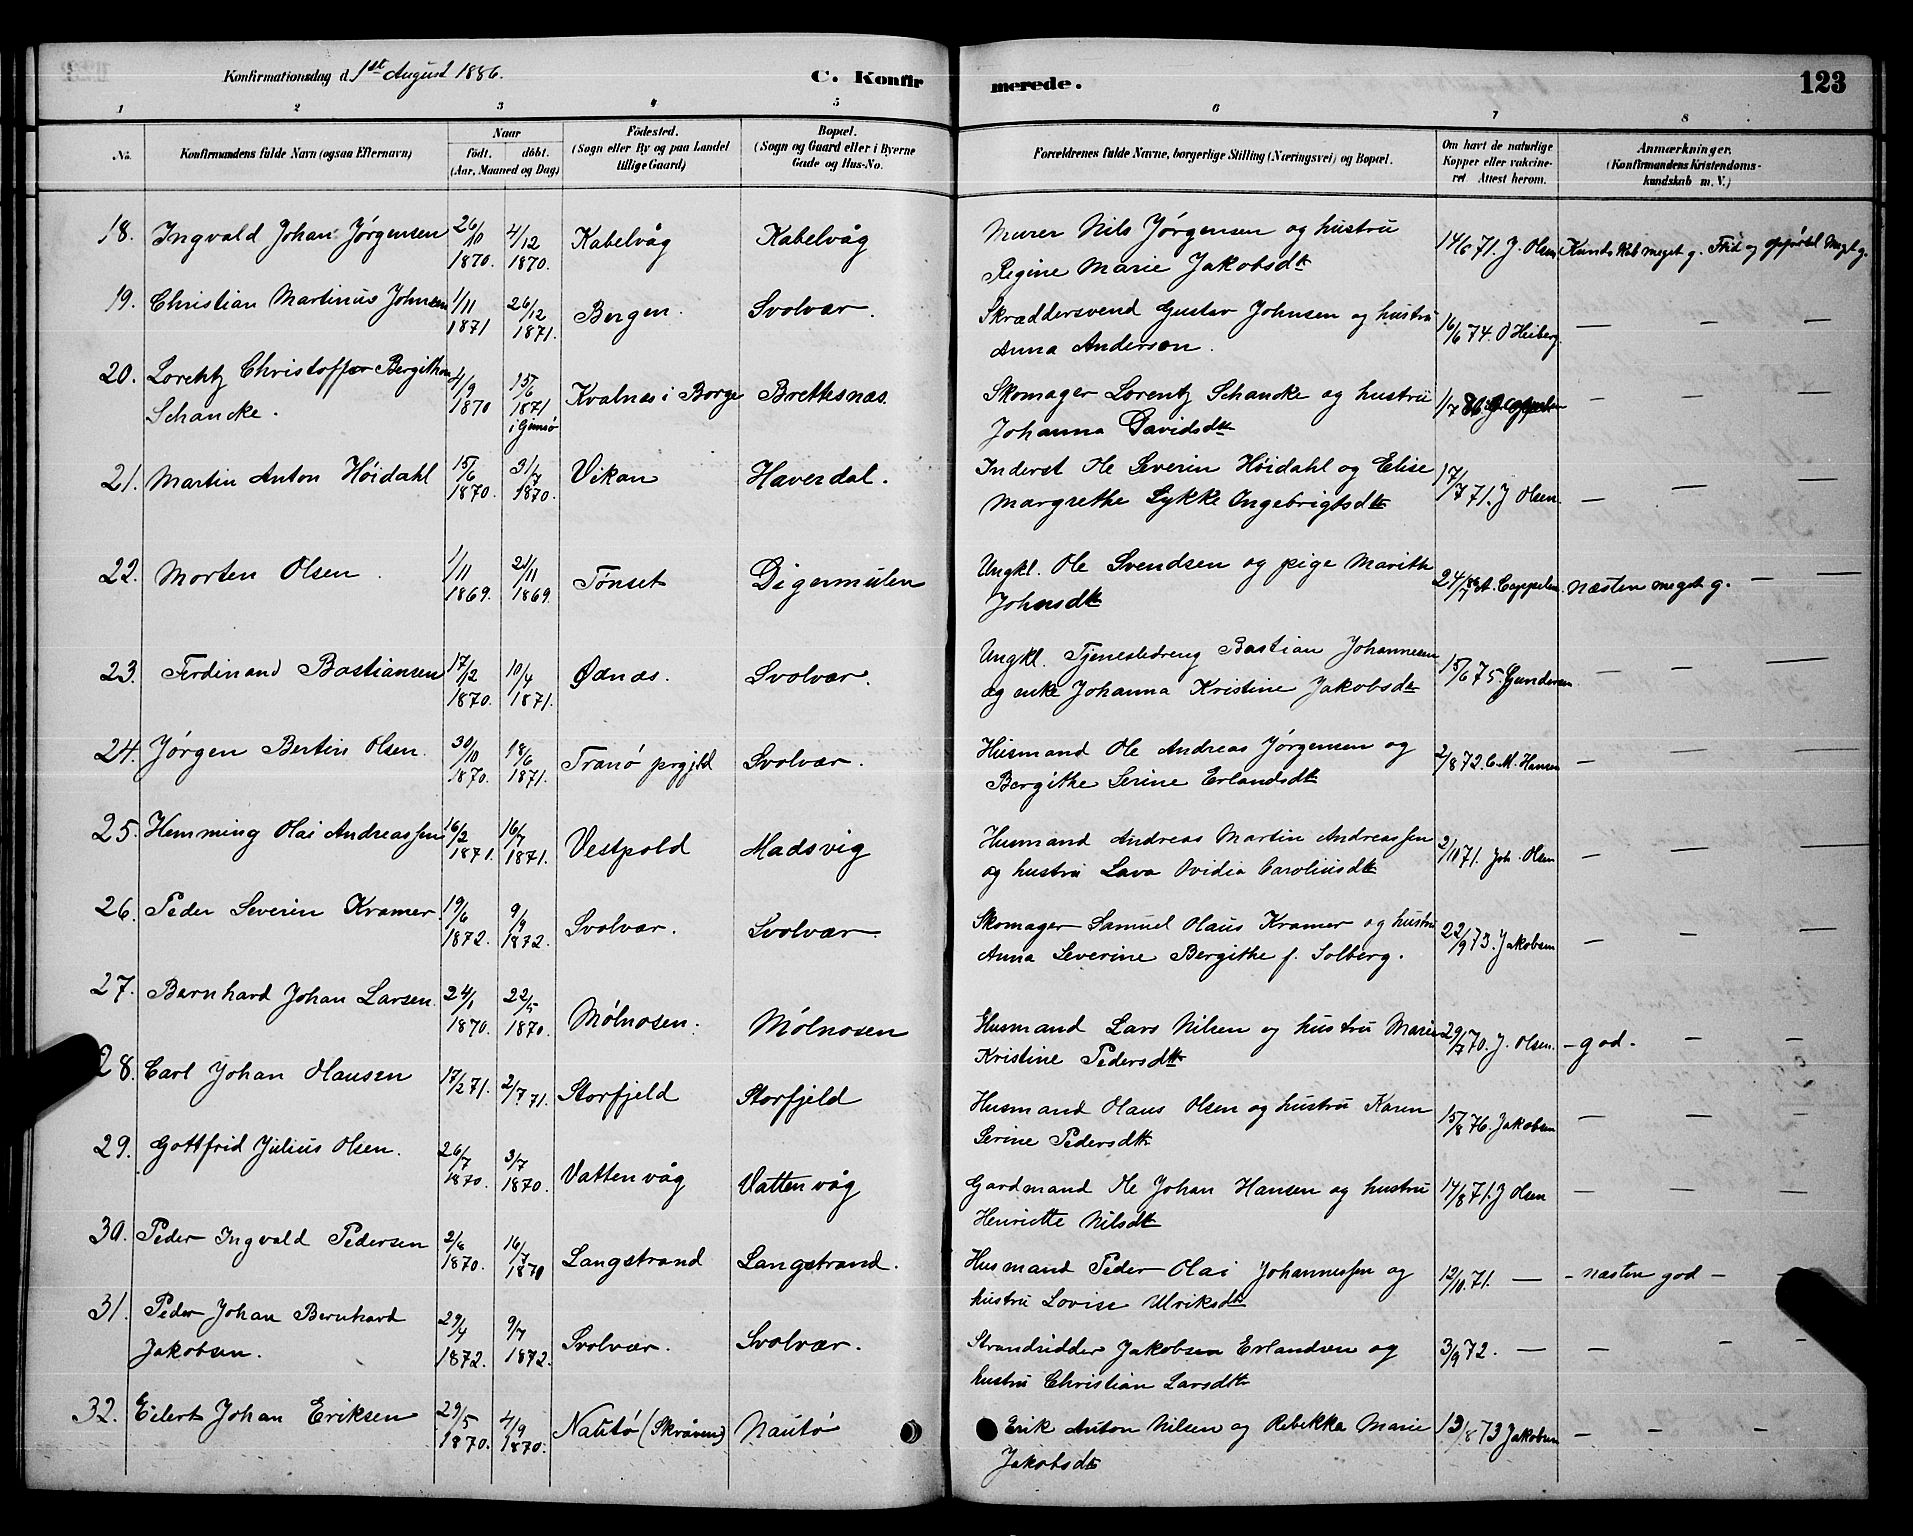 Konfirmationsdag d. 1ste August 1886.
C. Konfir
merede.
123
1 2 3 4 5 6 7 8
No. Konfirmandens fulde Navn (ogsaa Efternavn) Naar født. døbt. (Aar, Maaned og Dag) Fødested. (Sogn eller By og paa Landet tillige Gaard) Bopæl. (Sogn og Gaard eller i Byerne Gade og Hus-No. Forældrenes fulde Navne, borgerlige Stilling (Næringsvei) og Bopæl. Om havt de naturlige Kopper eller vakcineret Attest herom. Anmærkninger. (Konfirmandens Kristendomskundskab m. V.)
18. Ingvald Johan Jørgensen 26/10 1870. 4/12 1870. Kabelvåg Kabelvåg Murer Nils Jørgensen og hustru 14/6 71. J. Olsen Kundskab meget g. Flid og opførsel Meget g.
Regine Marie Jakobsdtr
19. Christian Martinus Johnsen 1/11 1871 26/12 1871. Bergen. Svolvær. Skræddersvend Gustav Johnsen og hustru 16/6 74. O Heiberg — — —
Anna Anderson.
20. Lorentz Christoffer Bergithon 4/9 1870 15/6 1871 i Gimsø Kvalnæs i Borge Brettesnæs. Skomager Lorentz Schancke og hustru 1/7 86 — — —
Schancke. Johanna Davidsdtr
21. Martin Anton Høidahl 15/6 1870. 31/7 1870. Vikan Haverdal. Inderst Ole Severin Høidahl og Elise 17/7 71. J Olsen — — —
Margrethe Lykke Ingebrigtsdtr
22. Morten Olsen. 1/11 1869. 21/11 1869. Tønset Digermulen Ungkl. Ole Svendsen og pige Marith 24/7 A. Cappelen. Næsten meget g. — —
Johnsdtr
23. Ferdinand Bastiansen 17/12 1870. 10/4 1871. Ødnæs. Svolvær. Ungkl. Tjenestedreng Bastian Johannesen 15/6 75. Gundersen — — —
og enke Johanna Kristine Jakobsdtr
24. Jørgen Bertin Olsen. 30/10 1870. 18/6 1871. Tranø prgjld Svolvær. Husmand Ole Andreas Jørgensen og 2/8 72. C. M. Hansen — — —
Bergithe Serine Erlandsdtr
25. Hemming Olai Andreassen 16/2 1871. 16/7 1871. Vestpold Madsvig Husmand Andreas Martin Andreassen 2/10 71. Joh. Olsen — — —
og hustru Lava Ovidia Caroliusdtr
26. Peder Severin Kramer. 19/6 1872. 9/9 1872. Svolvær. Svolvær. Skomager Samuel Olaus Kramer og hustru 22/9 73. Jakobsen — — —
Anna Severine Bergithe f. Solberg.
27. Bernhard Johan Larsen. 24/1 1870. 22/5 1870. Mølnosen. Mølnosen Husmand Lars Nilsen og hustru Marie 29/7 70. J. Olsen. – god. — —
Kristine Pedersdtr
28. Carl Johan Olausen 17/2 71. 2/7 71. Storfjeld Storfjeld Husmand Olaus Olsen og hustru Karen 15/8 76. Jakobsen — — —
Serine Pedersdtr
29. Gottfrid Julius Olsen. 26/7 1870. 3/7 1870. Vattenvåg Vattenvåg Gardmand Ole Johan Hansen og hustru 17/8 71. J Olsen — — —
Henriette Nilsdtr
30. Peder Ingvald Pedersen 2/6 1870. 16/7 1870 Langstrand Langstrand. Husmand Peder Olai Johannessen og 12/10 71. — – næsten god – —
hustru Lovise Ulriksdtr
31. Peder Johan Bernhard 29/4 1872. 9/7 1872. Svolvær. Svolvær. Strandsidder Jakobsen Erlandsen og 3/9 72. — — — —
Jakobsen. hustru Christian Larsdtr
32. Eilert Johan Eriksen 29/5 1870. 4/9 1870. Nautø (Skråven) Nautø Erik Anton Nilsen og Rebekka Marie 13/8 73 Jakobsen — — —
Jakobsdtr